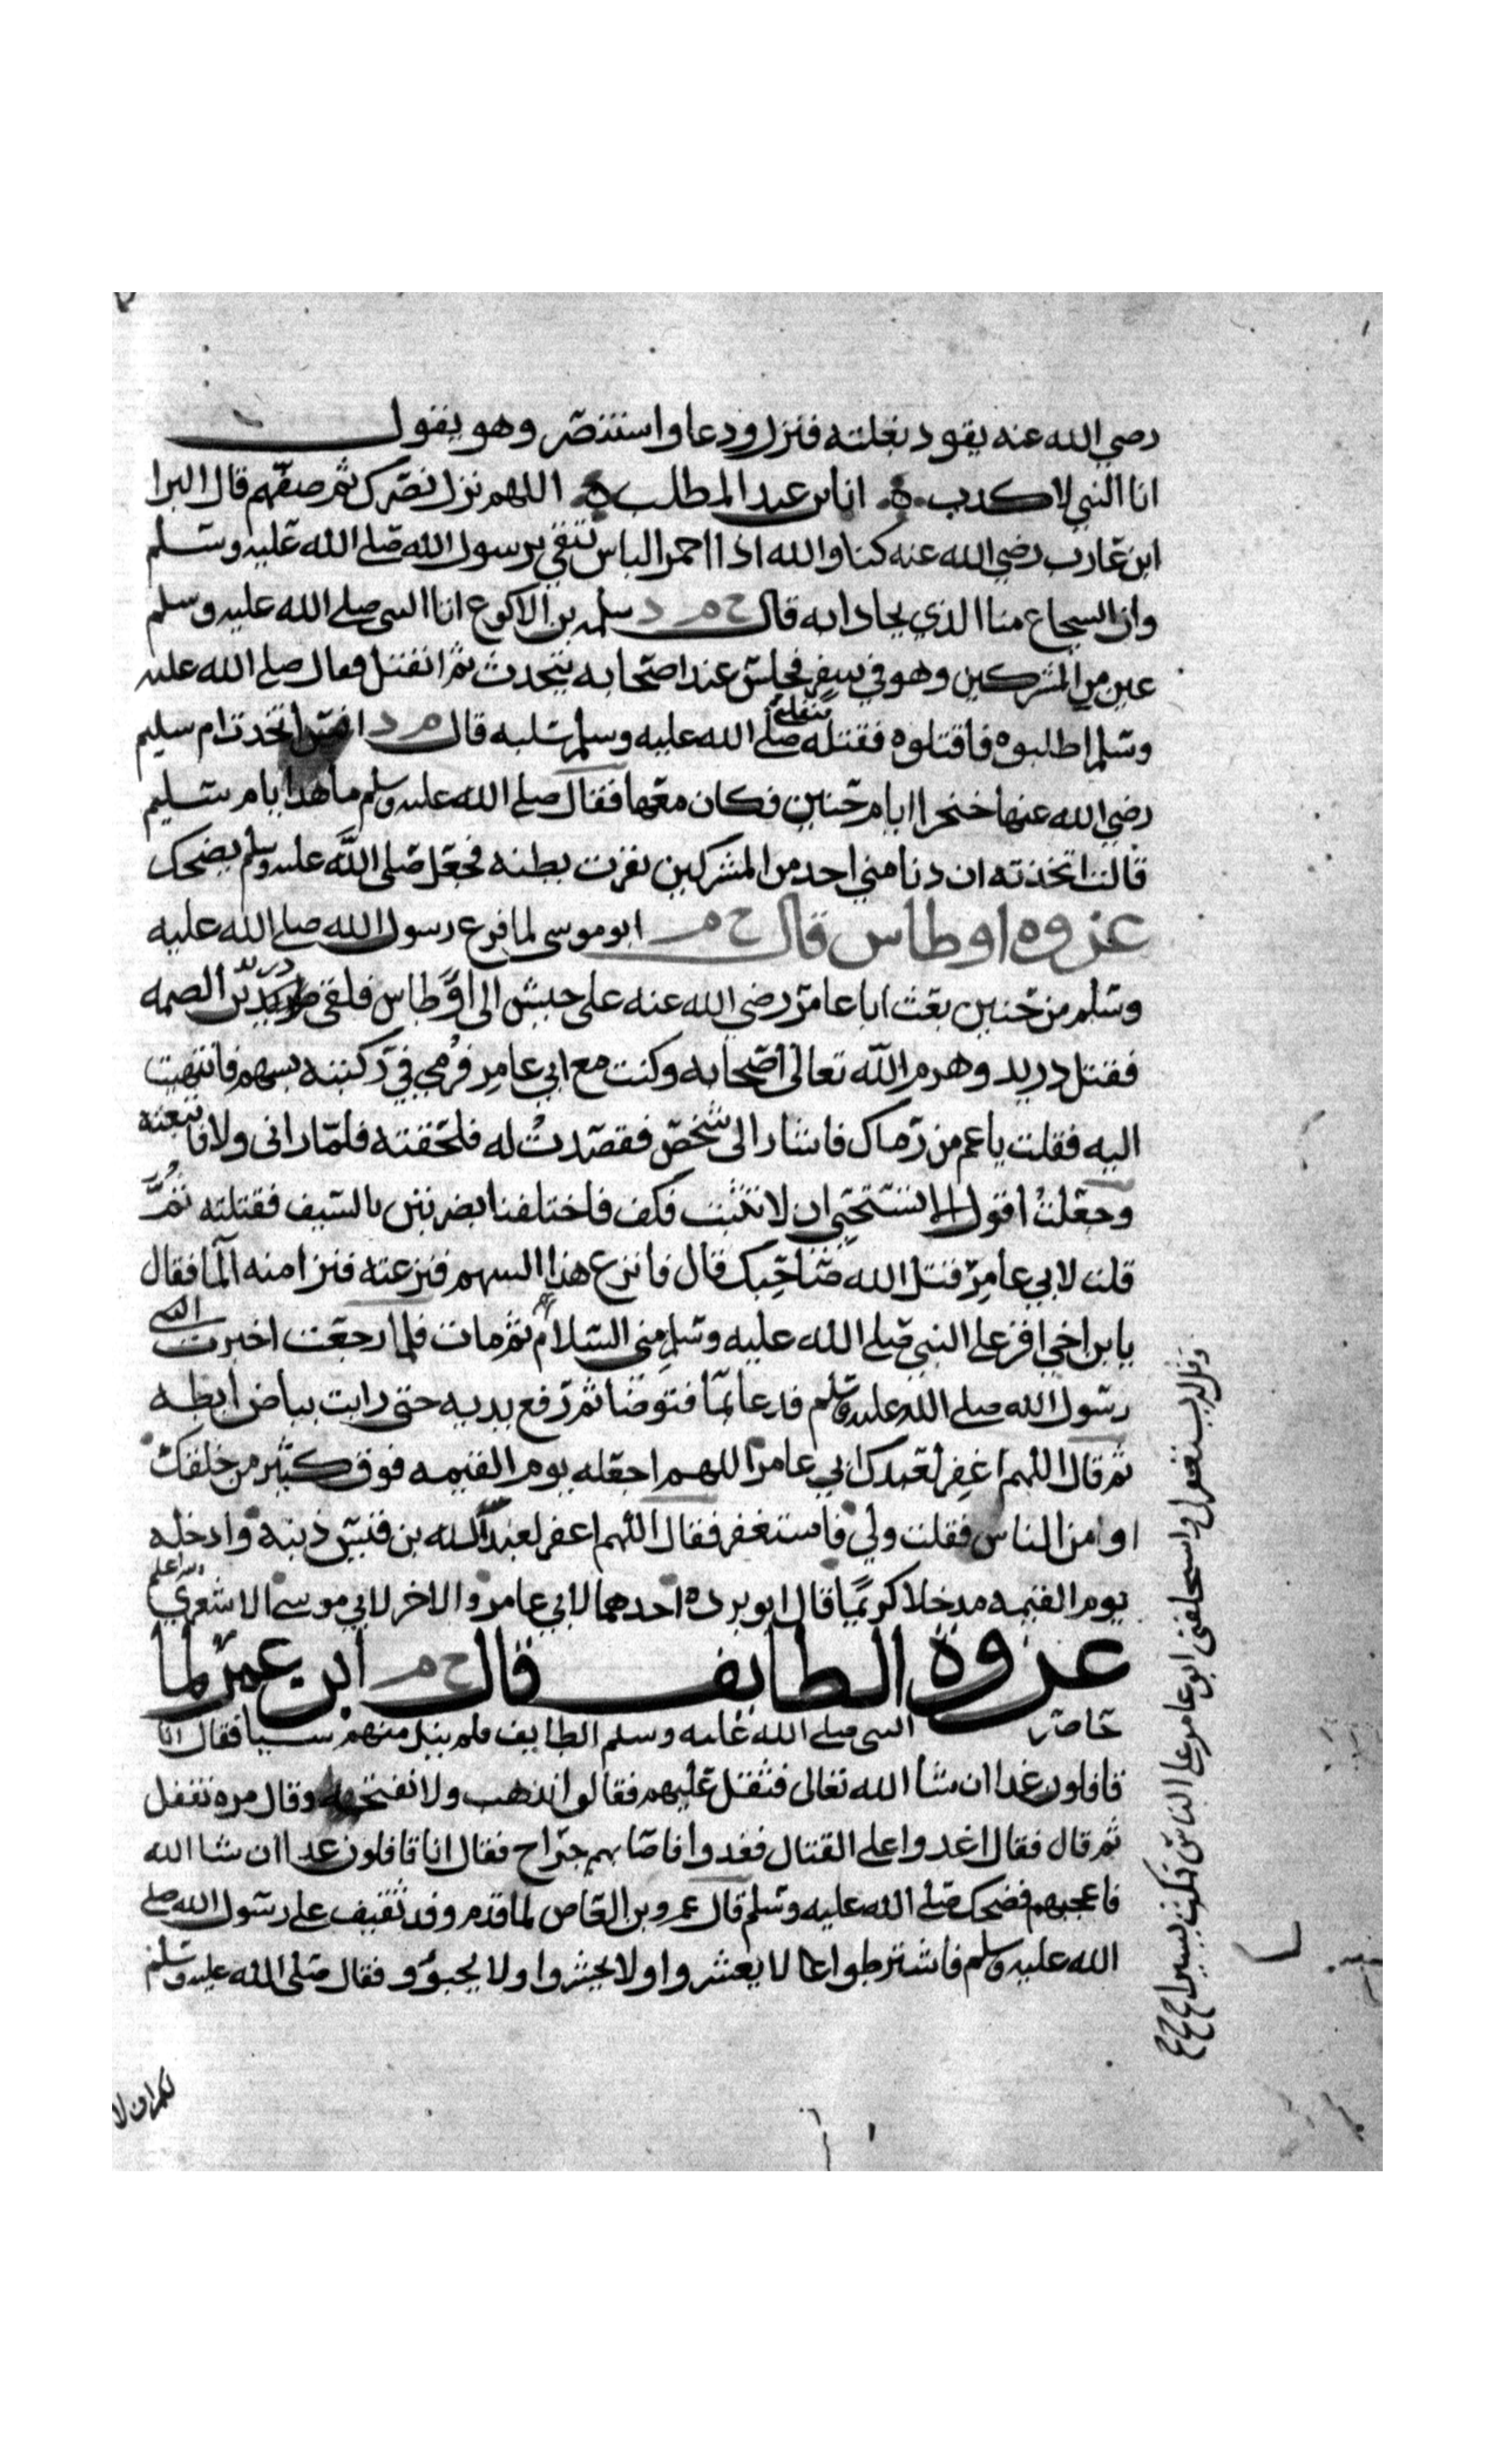 رضي الله عنه يقود بغلته فنزل ودعا واستنصر وهو يقول
انا النبي لا كدب ۞ انا بن عبد المطلب ۞ اللهم نزل نصرك ثم صفهم قال البرا
ابن عازب رضي الله عنه كنا والله اذا احمر الباس نتقي برسول الله صلى الله عليه وسلم
وان الشجاع منا الذي يحاذا به قال خ م د سلمه بن الاكوع اتا النبي صلى الله عليه وسلم
عين من المشركين وهو في سفر فجلس عند اصحابه يتحدث ثم انفتل فقال صلى الله عليه
وسلم اطلبوه فاقتلوه فقتلته فنفلني صلى الله عليه وسلم سلبه قال م د انس اتخدت ام سليم
رضي الله عنها خنجرا ايام حنين فكان معها فقال صلى الله عليه وسلم ما هدا يا ام سليم
قالت اتخذته ان دنا مني احد من المشركين بقرت بطنه فجعل صلى الله عليه وسلم يضحك
غزوه اوطاس قال خ م ابو موسى لما فرغ رسول الله صلى الله عليه
وسلم من حنين بعث ابا عامر رضي الله عنه على جيش الى اوطاس فلقى دريد بن الصمه
فقتل دريد وهزم الله تعالى اصحابه وكنت مع ابي عامر فرمي في ركبته بسهم فانتهيت
اليه فقلت يا عم من رماك فاشار الى شخص فقصدت له فلحقته فلما راني ولا فاتبعته
وجعلت اقول الا تستحي الا تثبت فكف فاختلفنا بضربتين بالسيف فقتلته ثم
قلت لابي عامر قتل الله صاحبك قال فانزع هذا السهم فنزعته فنزا منه الما فقال
يا بن اخي اقر على النبي صلى الله عليه وسلم مني السلام ثم مات فلما رجعت اخبرت النبي
رسول الله صلى الله عليه وسلم فدعا بما فتوضا ثم رفع يديه حتى رايت بياض ابطيه
ثم قال اللهم اغفر لعبدك ابي عامر اللهم اجعله يوم القيمه فوق كثير من خلقك
او من الناس فقلت ولي فاستغفر فقال اللهم اغفر لعبد الله بن قيس ذنبه وادخله
يوم القيمه مدخلا كريما قال ابو برده احدهما لابي عامر والاخر لابي موسى الاشعري والله اعلم
غزوة الطايف قال خ م ابن عمر لما
حاصر النبي صلى الله عليه وسلم الطايف فلم ينل منهم شيا فقال انا
قافلون غدا ان شا الله تعالى فثقل عليهم فقالوا نذهب ولا نفتحه وقال مره نقفل
ثم قال فقال اغدوا على القتال فغدوا فاصابهم جراح فقال انا قافلون غدا ان شا الله
فاعجبهم فضحك صلى الله عليه وسلم قال عمرو بن العاص لما قدم وفد ثقيف على رسول الله صلى
الله عليه وسلم فاشترطوا لا يعشروا ولا يحشروا ولا يجبوو فقال صلى الله عليه وسلم
لكم ان لا
واستخلفني ابو عامر على الناس فمكث يسيرا